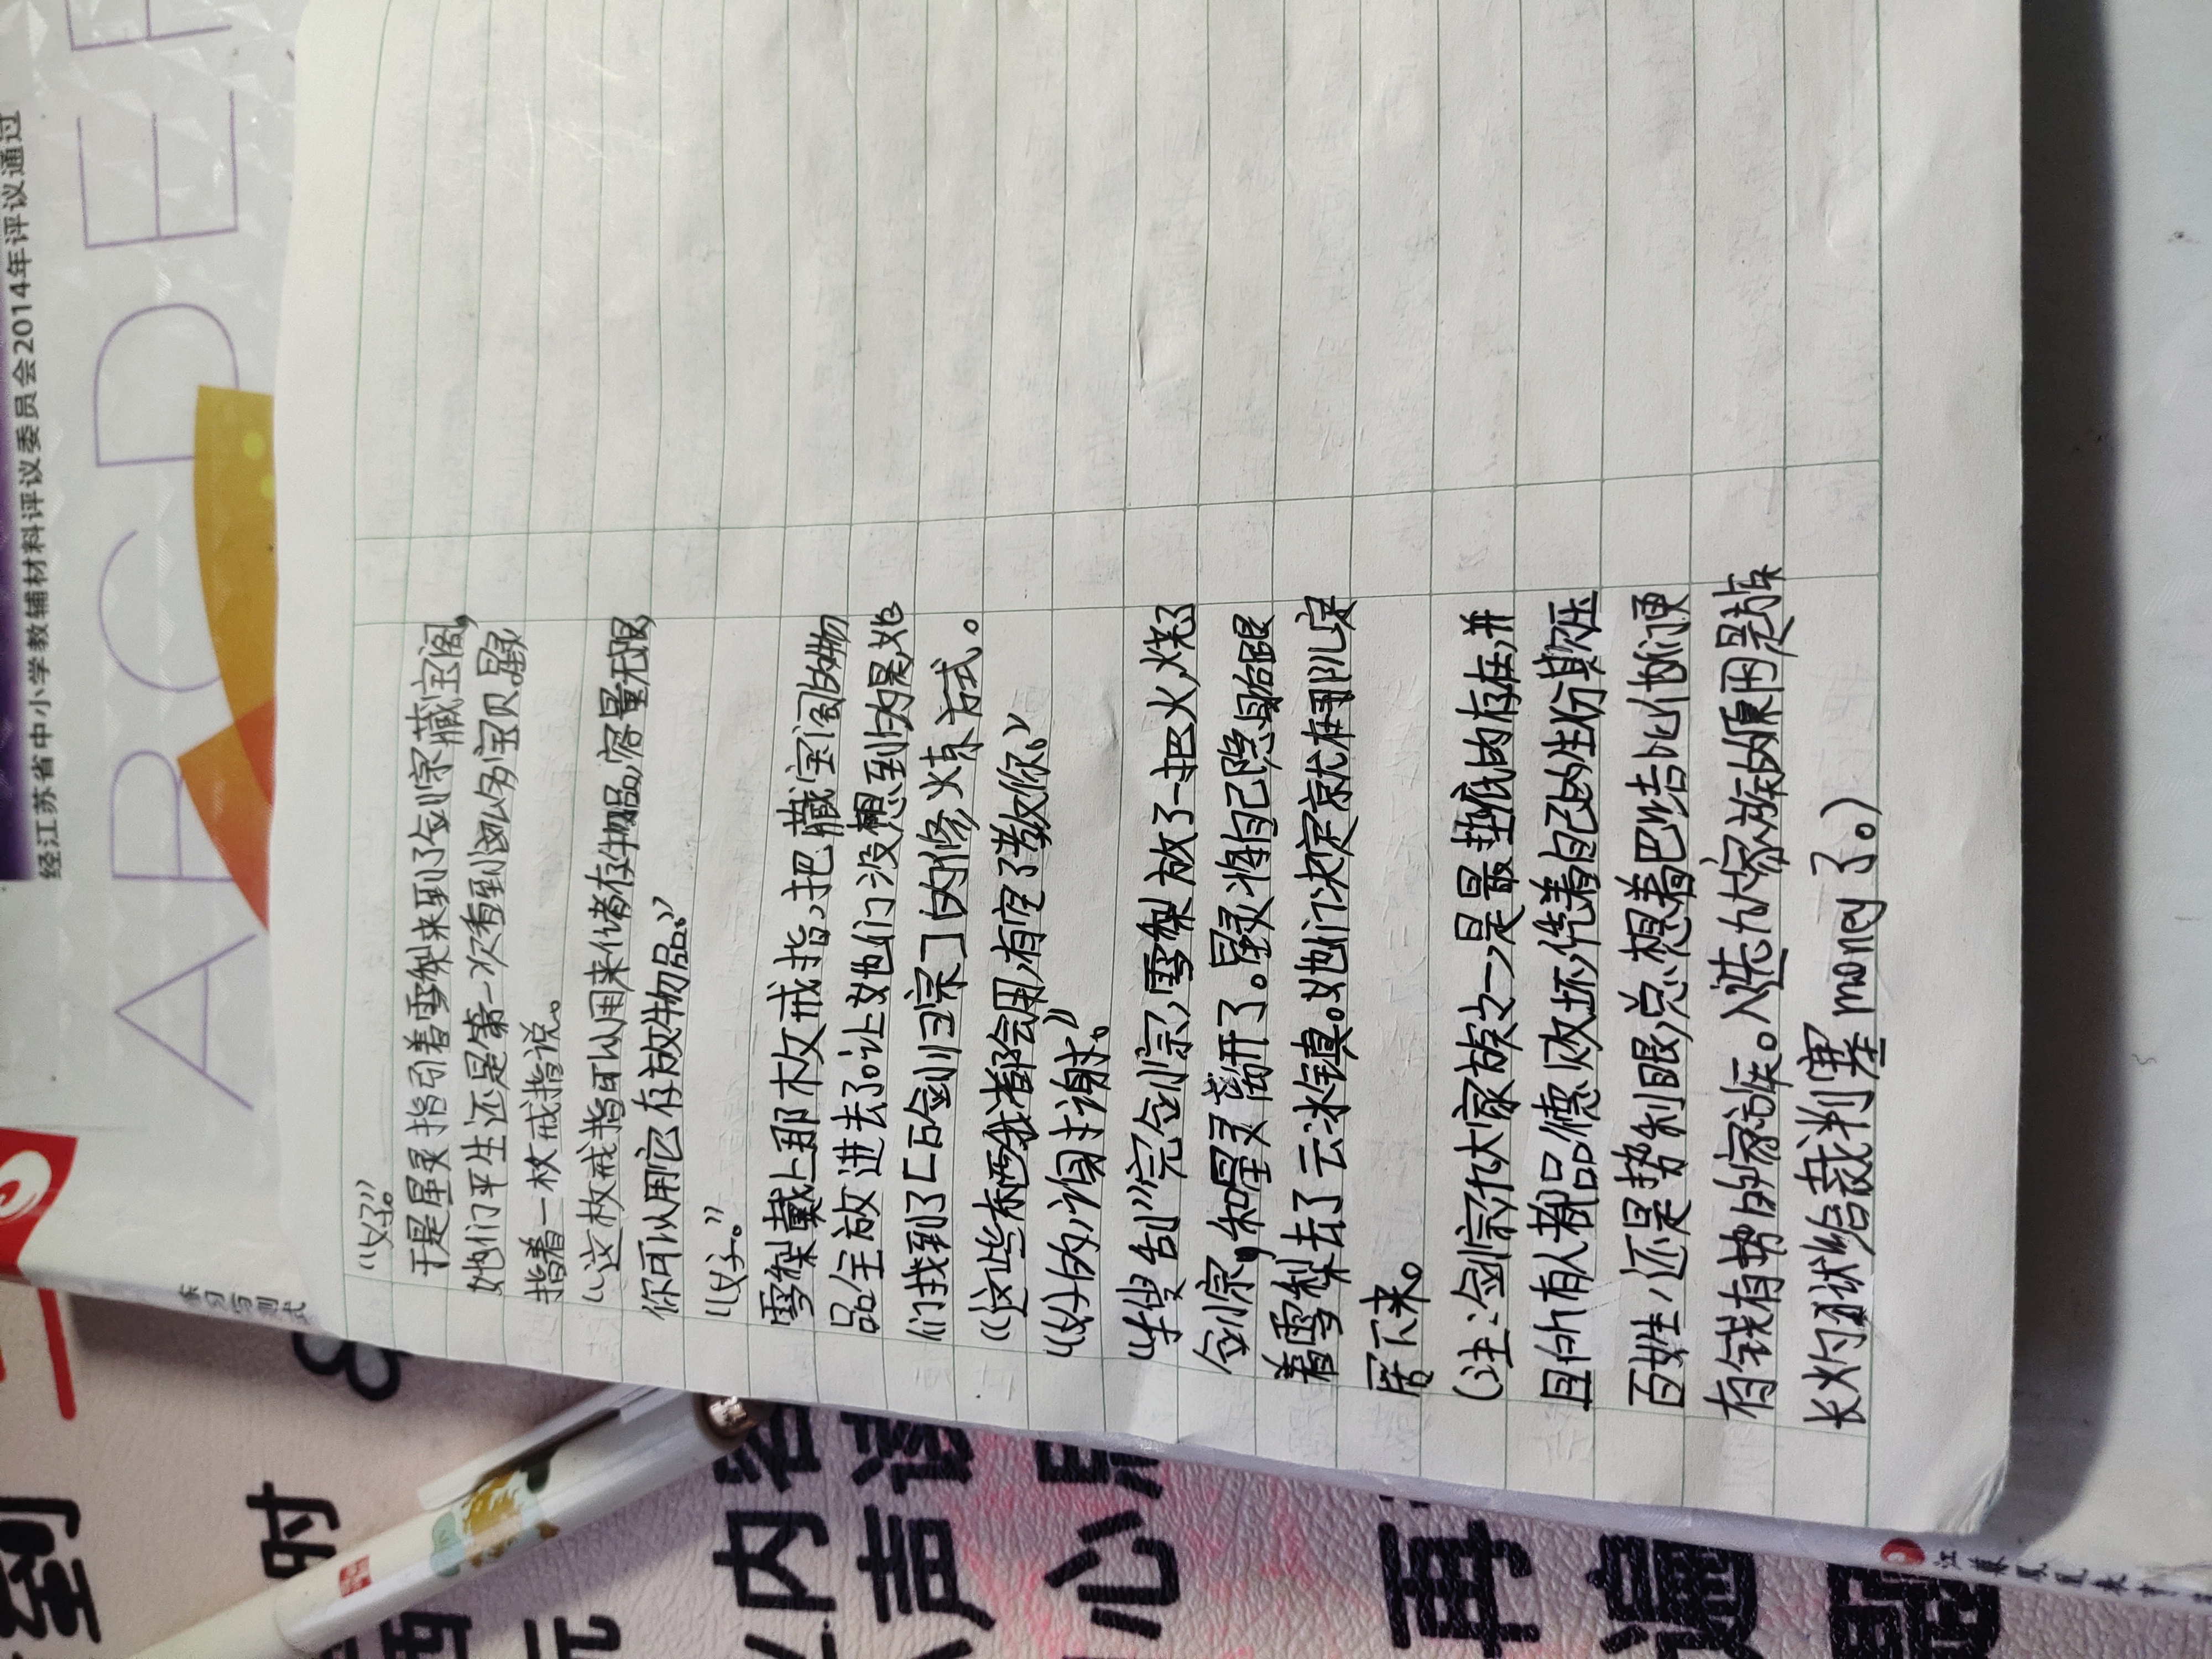 “好。”
于是星灵指引着雪梨来到了剑宗藏宝阁,
她们平生还是第一次看到这么多宝贝。星灵
指着一枚戒指说。
“这枚戒指可以用来储存物品,容量无限,
你可以用它存放物品。”
“好。”
雪梨戴上那枚戒指,把藏宝阁的物
品全放进去了。让她们没想到的是,她
们找到了古剑归宗门的修炼方式。
“这些东西我都会用,有空了教你。”
“好的,谢谢。”
“搜刮”完剑宗,雪梨放了一把火,烧了
剑宗,和星灵离开了。星灵将自己隐身跟
着雪梨去了云水镇。她们决定就在那儿安
居下来。
(注:剑宗九大家族之一,是最垫底的存在,并
且所有人都品德败坏,凭着自己的性份欺压
百姓,还是势利眼,总想着巴结比他们更
有钱有势的家族。入选九大家族的原因是族
长灼狱给裁判塞money了。)
经江苏省中小学教辅材料评议委员会2014年评议通过
ABCDEF
到
时
内
声
心
再
遍